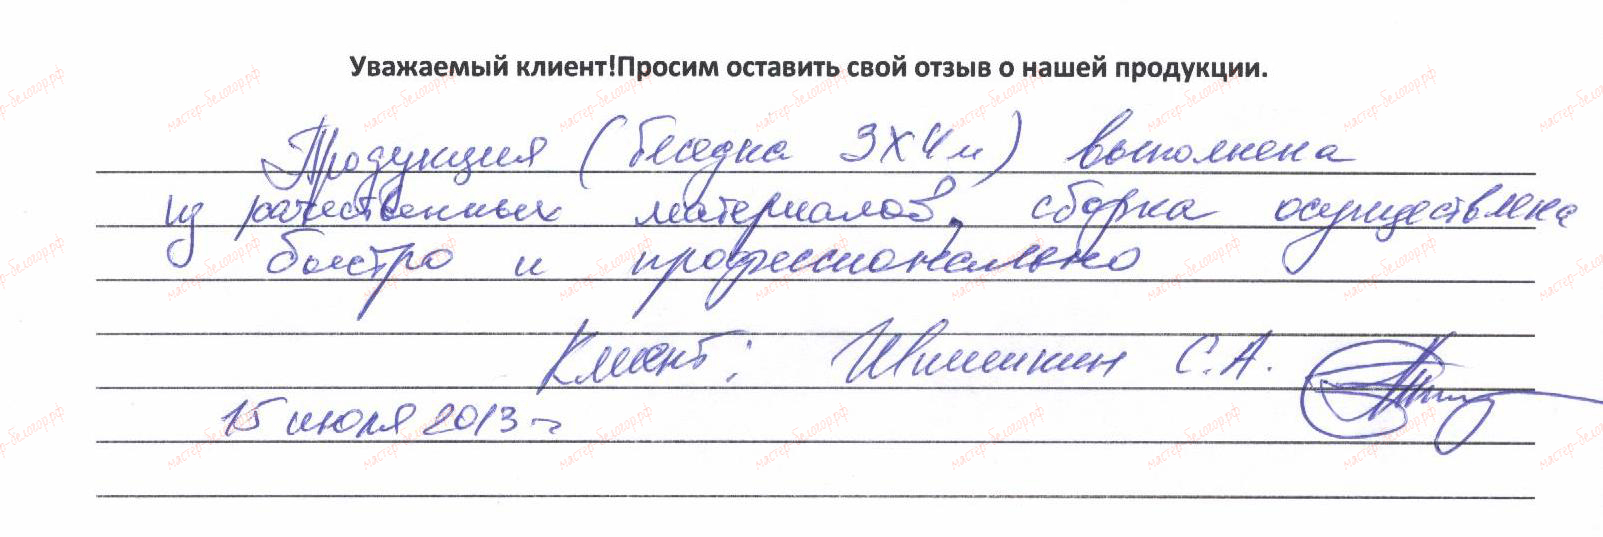 Уважаемый клиент!Просим оставить свой отзыв о нашей продукции.
Продукция (беседка 3х4м) выполнена
из качественных материалов, сборка осуществлена
быстро и профессионально
Клиент: С.А.
15 июля 2013 г
мастер-беговр.рф